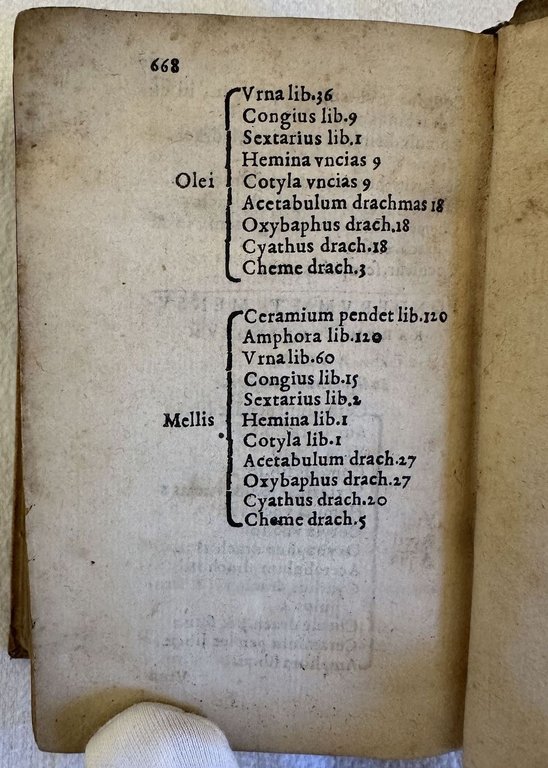 668
Vrna lib.36
Congius lib.9
Sextarius lib.1
Hemina vncias 9
Olei Cotyla vncias 9
Acetabulum drachmas 18
Oxybaphus drach.18
Cyathus drach.18
Cheme drach.3
Ceramium pendet lib.120
Amphora lib.120
Vrna lib.60
Congius lib.15
Sextarius lib.2
Mellis Hemina lib.1
Cotyla lib.1
Acetabulum drach.27
Oxybaphus drach.27
Cyathus drach.20
Cheme drach.5